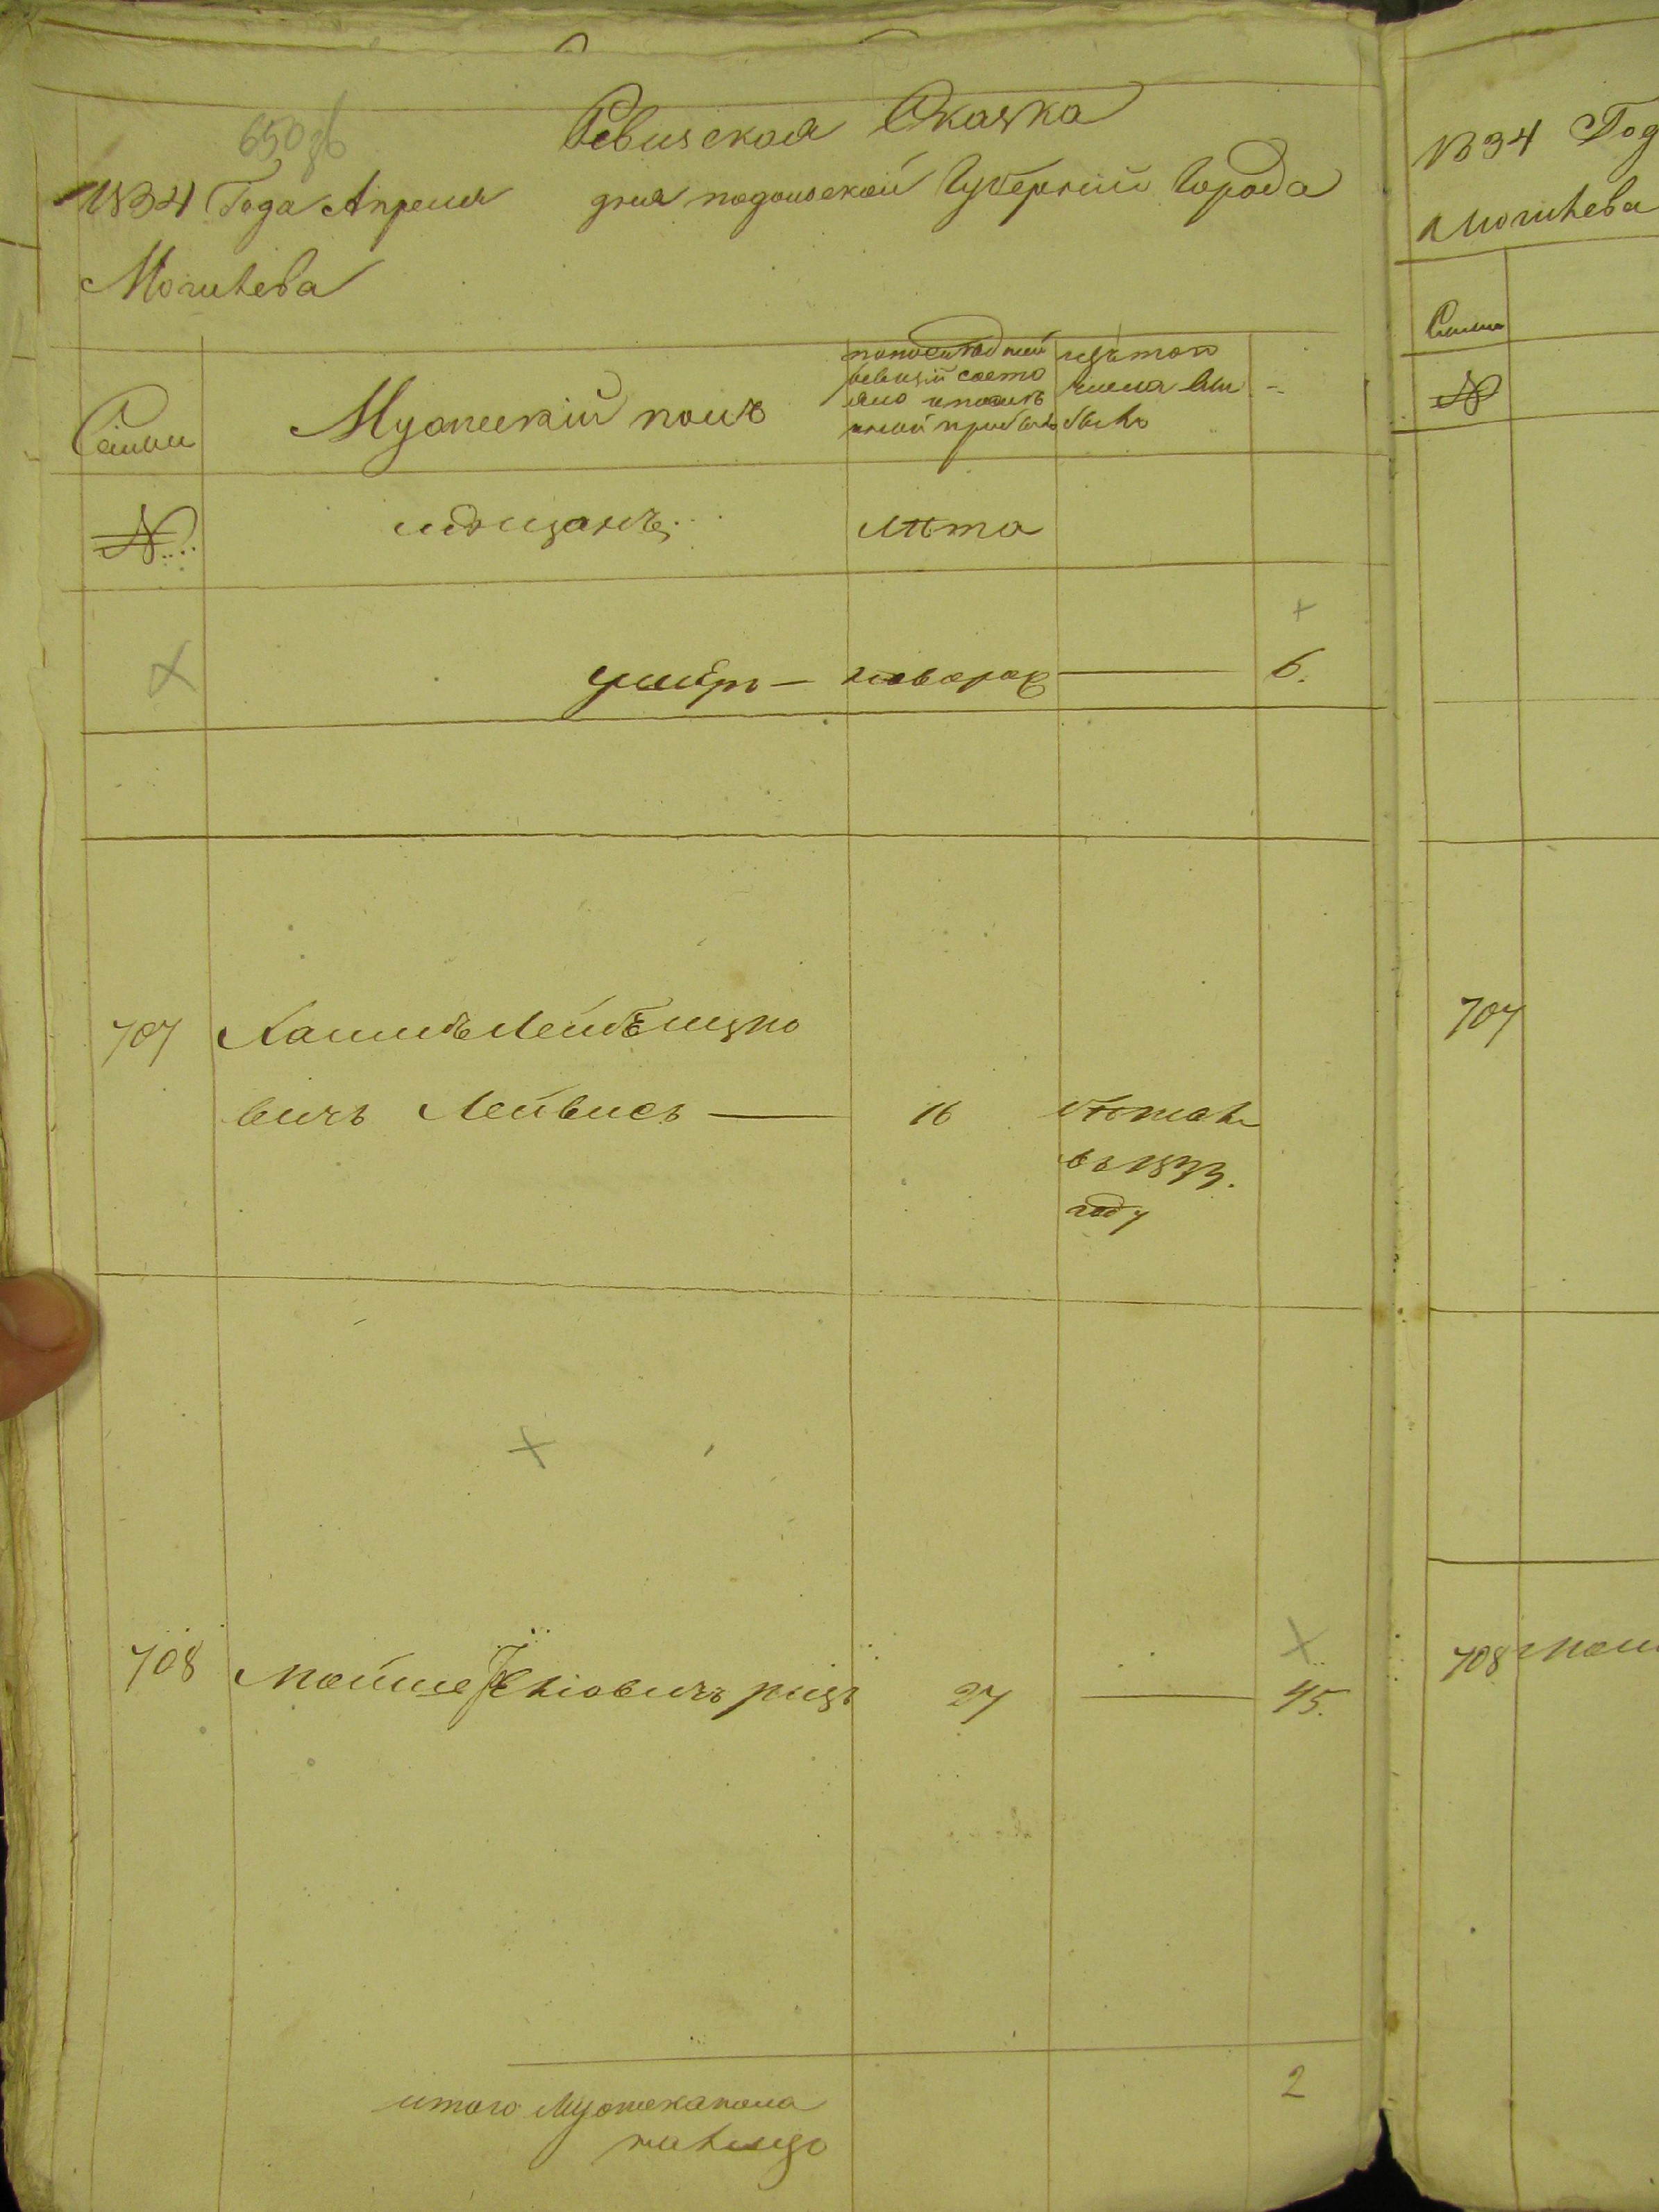 650
Ревизская Сказка
1834 Года Апреля дня подольской Губернии Города
Могилева
Семьи
Мужеский полъ
по последней
ревизий состо
яло и после
оной прибыло
изъ того
числа вы
было
№
мещанъ
лѣта
6.
707 Хаимъ Лейбъ ицко
вичъ Лейвисъ — 16
въ 1833.
году
708 Мошше вичъ 27 — 45.
итого Мужеска пола
на лицо
2
1834 Год
Могилева
Семьи
№
707
708